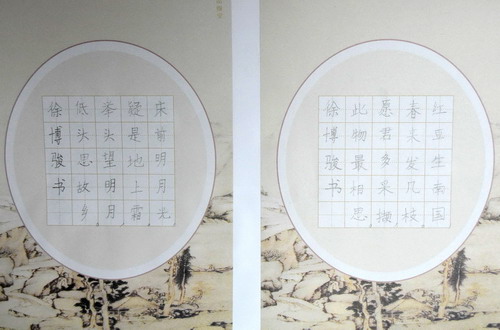 床前明月光
疑是地上霜
举头望明月
低头思故乡
徐博骏书
红豆生南国
春来发几枝
愿君多采撷
此物最相思
徐博骏书